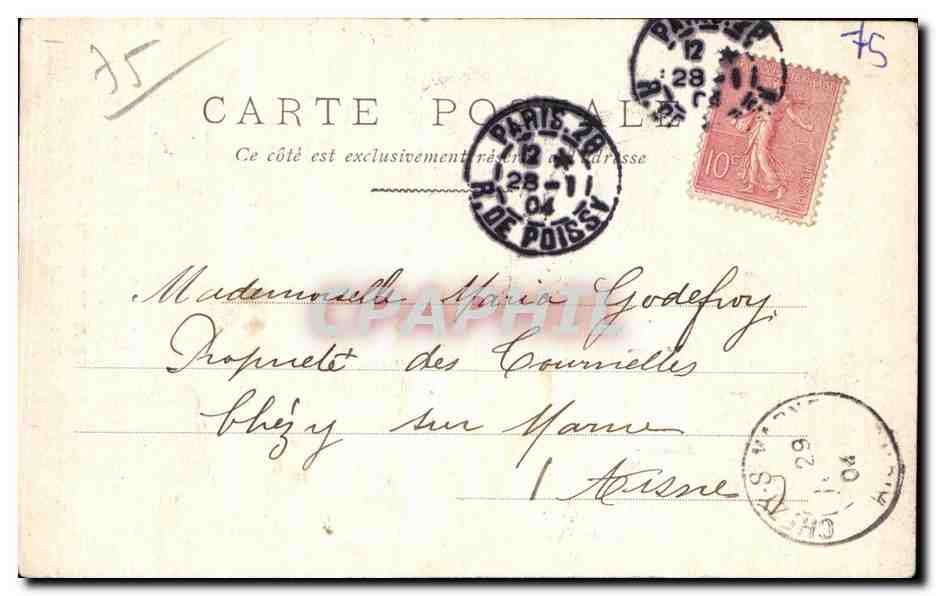 75
75
CARTE POSTALE
Ce côté est exclusivement réservé à l'adresse
PARIS 28
12 *
28 - 11
04
R. DE POISSY
PARIS 28
12 *
28 - 11
04
R. DE
10c
Mademoiselle Maria Godefroy
Propriété des Tournelles
Chézy sur Marne
Aisne
CPAPHIL
CHEZY-S-MARNE
29
04